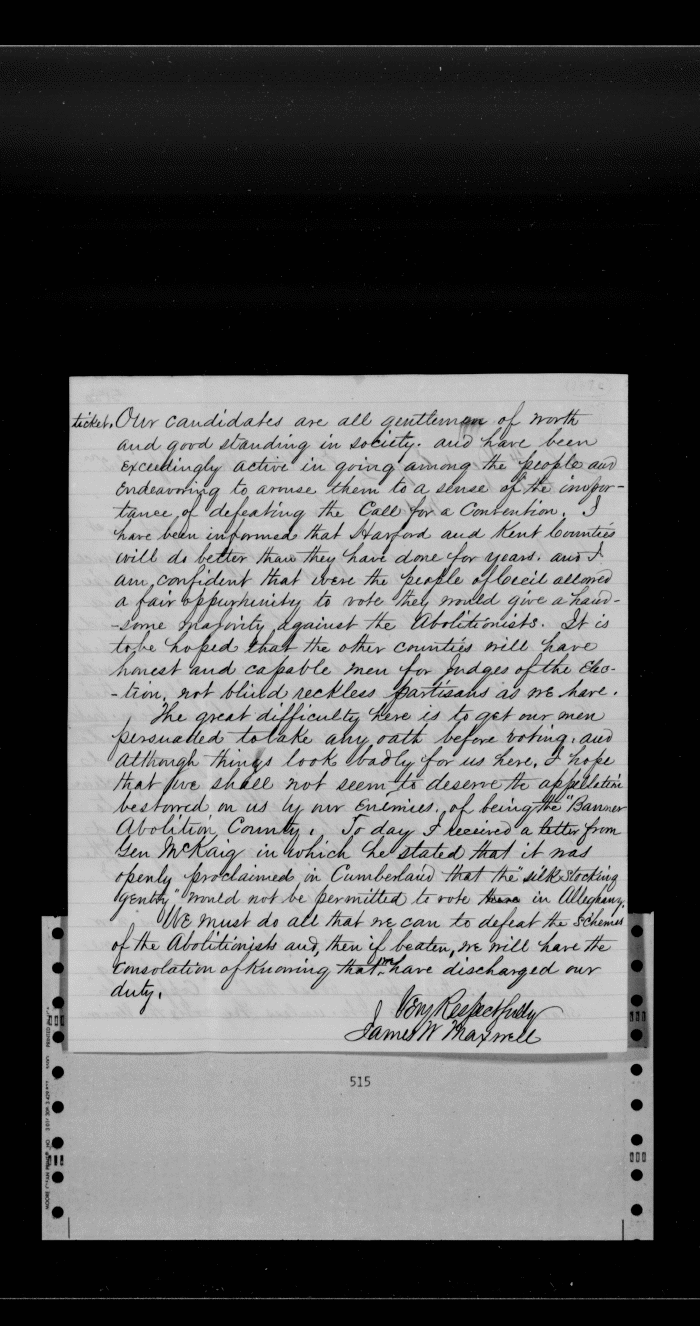 ticket. Our candidates are all gentlemen of worth
and good standing in society. and have been
exceedingly active in going among the people and
endeavoring to arouse them to a sense of the impor-
tance of defeating the Call for a Convention. I
have been informed that Harford and Kent Counties
will do better than they have done for years. and I
am confident that were the people of Cecil allowed
a fair oppurtunity to vote they would give a hand-
-some majority against the Abolitionists. It is
to be hoped that the other counties will have
honest and capable men for Judges of the Elec-
-tion, not blind reckless partisans as we have.
The great difficulty here is to get our men
persuaded to take any oath before voting. and
although things look badly for us here, I hope
that we shall not seem to deserve the appellation
bestowed on us by our Enemies. of being the "Banner
Abolition County". To day I received a letter from
Gen McKaig in which he stated that it was
openly proclaimed in Cumberland that the "silk stocking
gentry" would not be permitted to vote there in Alleghany.
We must do all that we can to defeat the Schemes
of the Abolitionists and, then if beaten, we will have the
consolation of knowing that we have discharged our
duty.
Very Respectfully
James W Maxwell
515